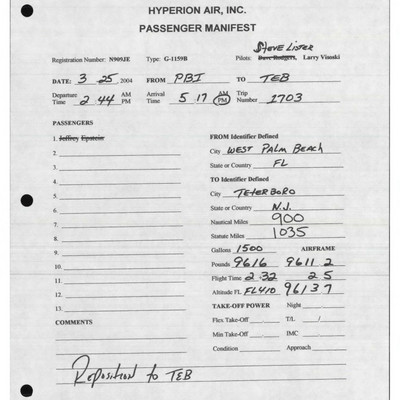 HYPERION AIR, INC.
PASSENGER MANIFEST
STEVE LISTER
Registration Number: N909JE Type: G-1159B Pilots: Dave Rodgers, Larry Visoski
DATE: 3 25 2004 FROM PBI TO TEB
Departure Time 2 44 PM Arrival Time 5 17 AM PM Trip Number 1703
PASSENGERS
1. Jeffrey Epstein
2.
3.
4.
5.
6.
7.
8.
9.
10.
11.
12.
13.
COMMENTS
Reposition to TEB
FROM Identifier Defined
City WEST PALM BEACH
State or Country FL
TO Identifier Defined
City TETERBORO
State or Country N.J.
Nautical Miles 900
Statute Miles 1035
Gallons 1500 AIRFRAME
Pounds 9616 9611 2
Flight Time 2:32 2 5
Altitude FL FL410 9613 7
TAKE-OFF POWER Night
Flex Take-Off T/L /
Min Take-Off IMC
Condition Approach